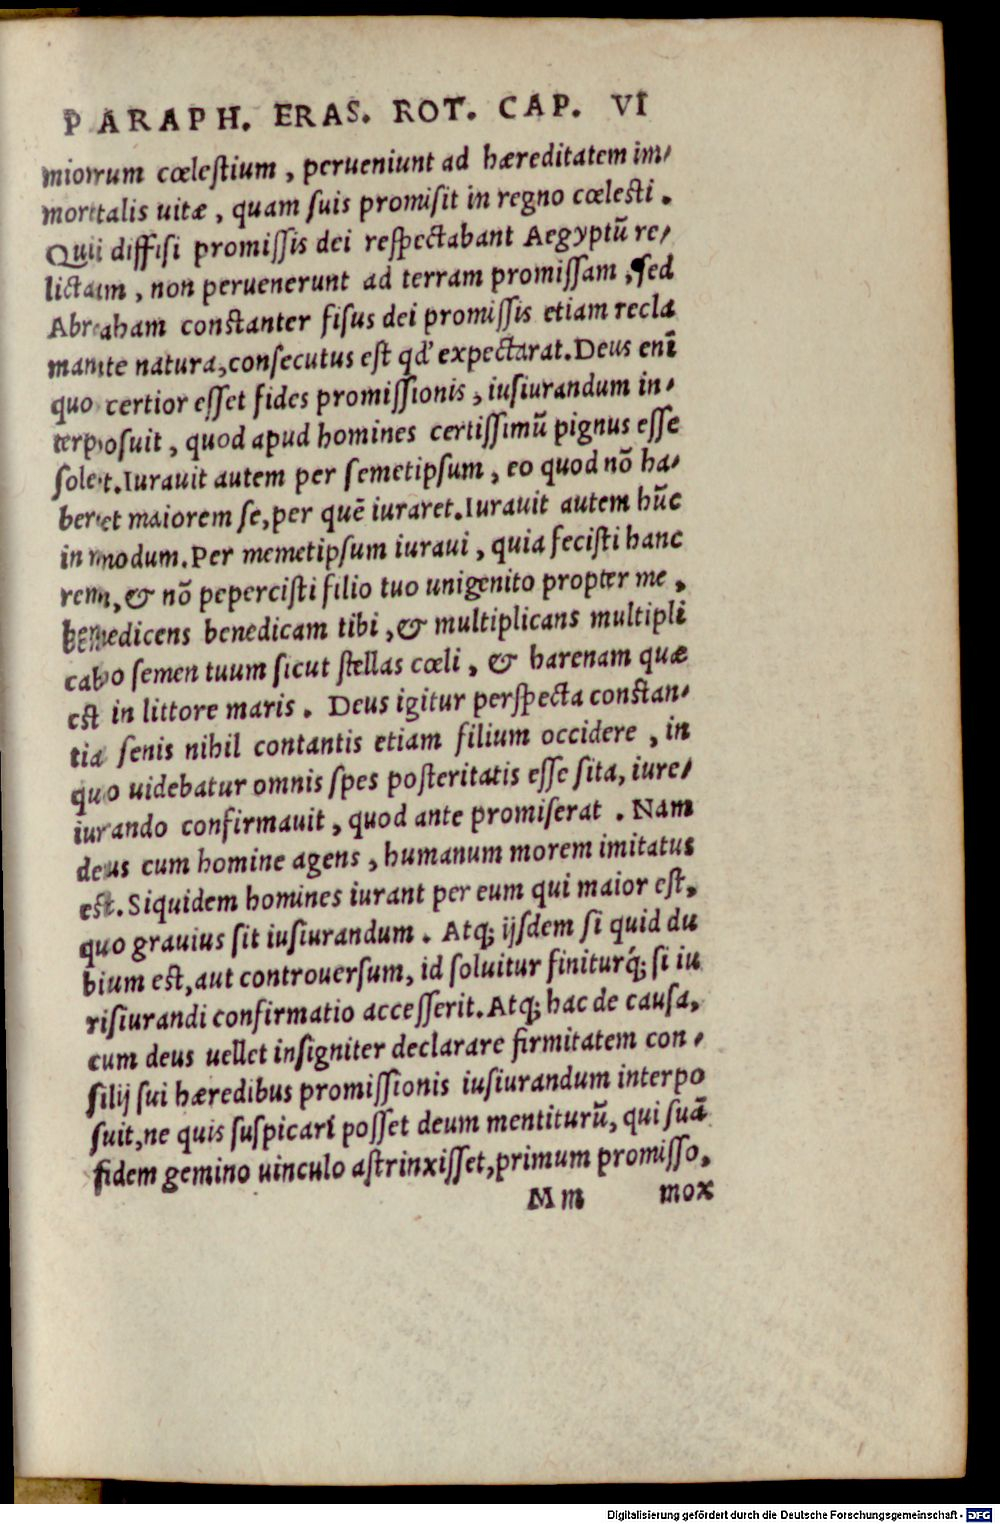 PARAPH. ERAS. ROT. CAP. VI
miorum cœlestium, perueniunt ad hæreditatem im-
mortalis uitæ, quam suis promisit in regno cœlesti.
Qui diffisi promissis dei respectabant Aegyptũ re-
lictam, non peruenerunt ad terram promissam, sed
Abraham constanter fisus dei promissis etiam recla
mante natura, consecutus est qd' expectarat. Deus enĩ
quo certior esset fides promissionis, iusiurandum in-
terposuit, quod apud homines certissimũ pignus esse
solet. Iurauit autem per semetipsum, eo quod nõ ha-
beret maiorem se, per quẽ iuraret. Iurauit autem hũc
in modum. Per memetipsum iuraui, quia fecisti hanc
rem, & nõ pepercisti filio tuo unigenito propter me,
benedicens benedicam tibi, & multiplicans multipli
cabo semen tuum sicut stellas cœli, & harenam quæ
est in littore maris. Deus igitur perspecta constan-
tia senis nihil contantis etiam filium occidere, in
quo uidebatur omnis spes posteritatis esse sita, iure-
iurando confirmauit, quod ante promiserat. Nam
deus cum homine agens, humanum morem imitatus
est. Siquidem homines iurant per eum qui maior est,
quo grauius sit iusiurandum. Atq; ijsdem si quid du
bium est, aut controuersum, id soluitur finiturq́; si iu
risiurandi confirmatio accesserit. Atq; hac de causa,
cum deus uellet insigniter declarare firmitatem con-
silij sui hæredibus promissionis iusiurandum interpo
suit, ne quis suspicari posset deum mentiturũ, qui suã
fidem gemino uinculo astrinxisset, primum promisso,
Mm mox
Digitalisierung gefördert durch die Deutsche Forschungsgemeinschaft - DFG